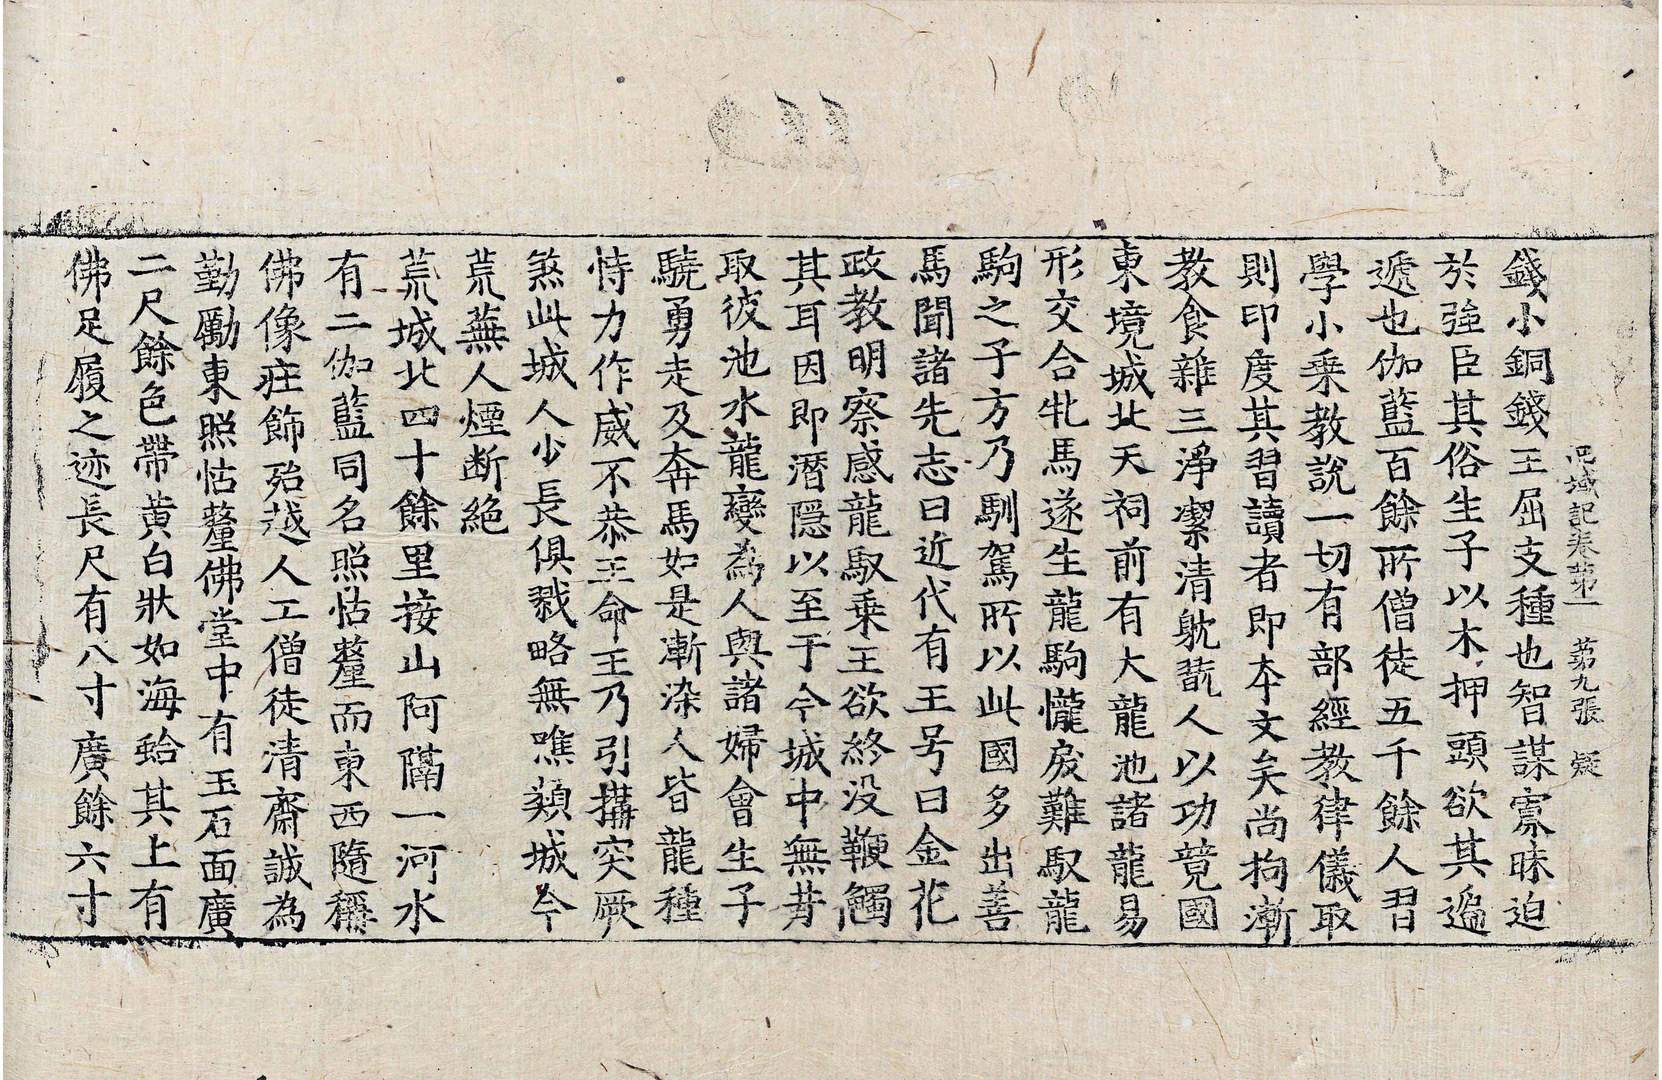 西域記卷第一　第九張　疑
錢小銅錢王屈支種也智謀寡昧迫
於強臣其俗生子以木押頭欲其遍
遞也伽藍百餘所僧徒五千餘人習
學小乘教說一切有部經教律儀取
則印度其習讀者即本文矣尚拘漸
教食雜三淨潔清躭翫人以功競國
東境城北天祠前有大龍池諸龍易
形交合牝馬遂生龍駒𢤱戾難馭龍
駒之子方乃馴駕所以此國多出善
馬聞諸先志曰近代有王号曰金花
政教明察感龍馭乘王欲終没鞭觸
其耳因即潛隱以至于今城中無井
取彼池水龍變為人與諸婦會生子
驍勇走及奔馬如是漸染人皆龍種
恃力作威不恭王命王乃引搆突厥
煞此城人少長俱戮略無噍類城今
荒蕪人煙断絶
荒城北四十餘里接山阿隔一河水
有二伽藍同名照怙釐而東西隨稱
佛像莊飾殆越人工僧徒清齋誠為
勤勵東照怙釐佛堂中有玉石面廣
二尺餘色帶黄白狀如海蛤其上有
佛足履之迹長尺有八寸廣餘六寸